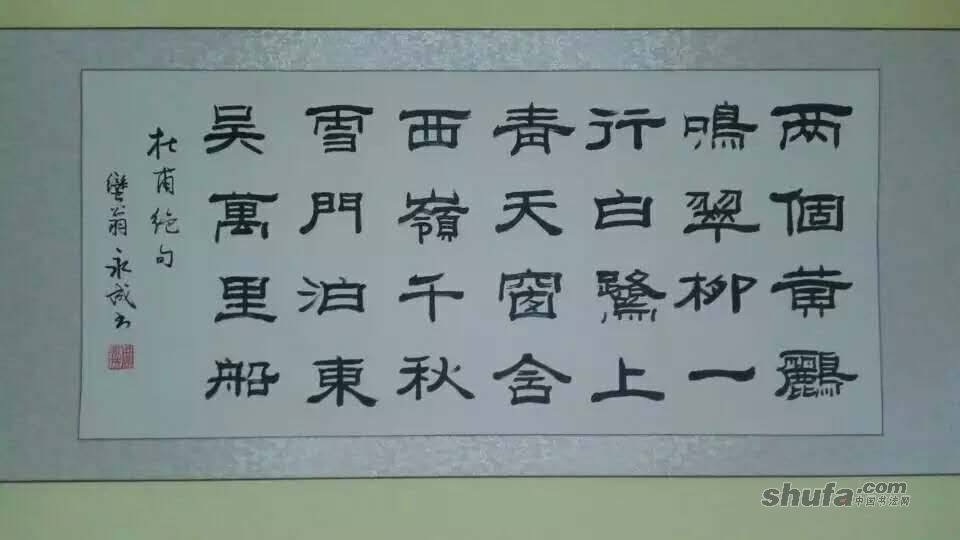 两個黄鸝
鳴翠柳一
行白鷺上
青天窗含
西嶺千秋
雪門泊東
吴萬里船
杜甫絶句
翁永成书
shufa.com
中国书法网